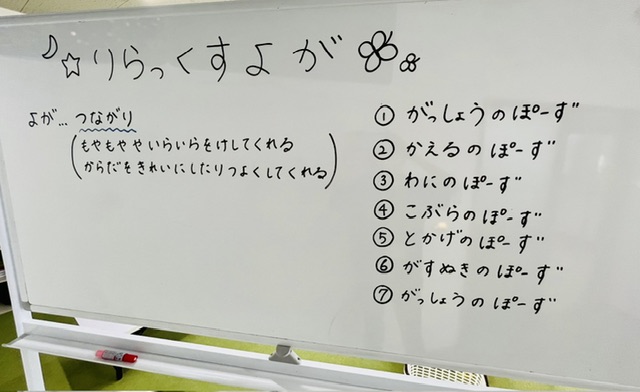 りらっくすよが
よが… つながり
(もやもやや いらいらを けしてくれる
からだを きれいにしたり つよくしてくれる)
① がっしょうの ぽーず
② かえるの ぽーず
③ わにの ぽーず
④ こぶらの ぽーず
⑤ とかげの ぽーず
⑥ がすぬきの ぽーず
⑦ がっしょうの ぽーず